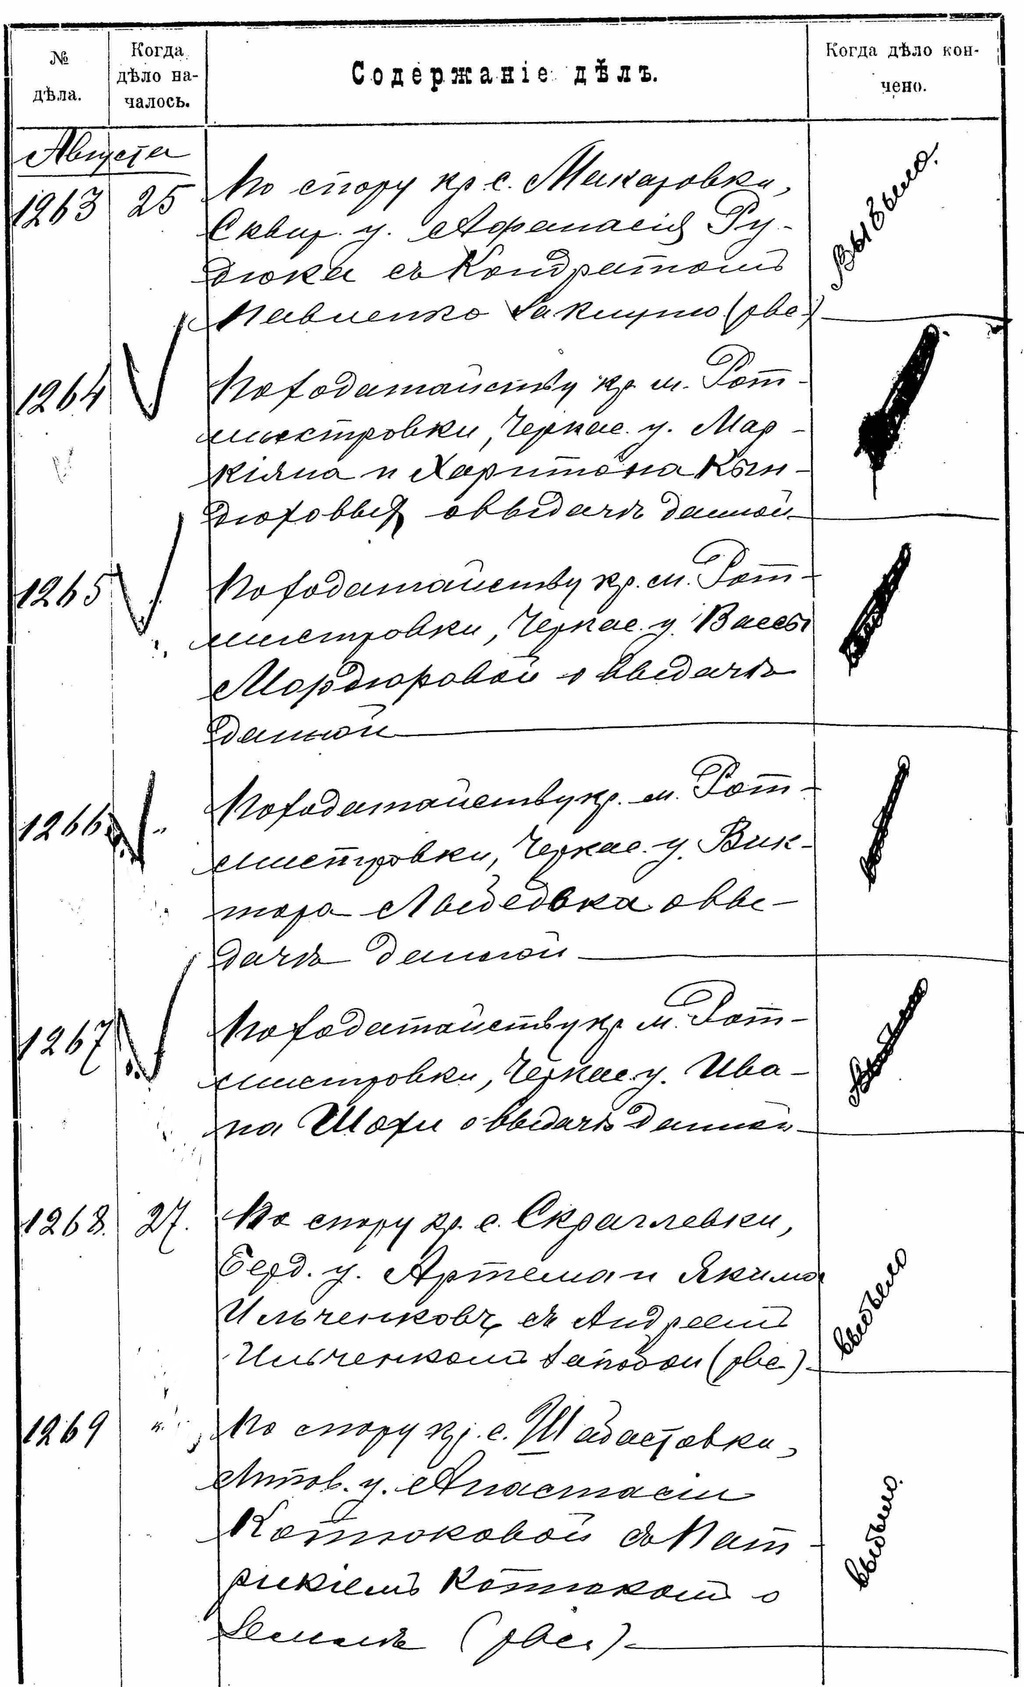 № дѣла.
Когда дѣло началось.
Содержаніе дѣлъ.
Когда дѣло кончено.
Августа
1263 25 По спору кр. с. Макаровки,
Сквир. у. Афанасія Ру-
дюка съ Кондратомъ
Павленко
выбыло.
1264 По ходатайству кр. м. Рот-
мистровки, Черкас. у. Мар-
кіяна и Харитона
о выдачѣ данной
1265 По ходатайству кр. м. Рот-
мистровки, Черкас. у. Вассы
о выдачѣ
данной
1266 По ходатайству кр. м. Рот-
мистровки, Черкас. у. Вик-
тора о вы-
дачѣ данной
1267 По ходатайству кр. м. Рот-
мистровки, Черкас. у. Ива-
на о выдачѣ данной
1268. 27. По спору кр. с. Скраглевки,
Берд. у. Артема и Якима
Ильченковъ съ Андреемъ
Ильченкомъ
выбыло
1269 По спору кр. с. Шабастовки,
Липов. у. Анастасіи
Котюковой съ Пат-
рикіемъ Котюкомъ о
землѣ
выбыло.